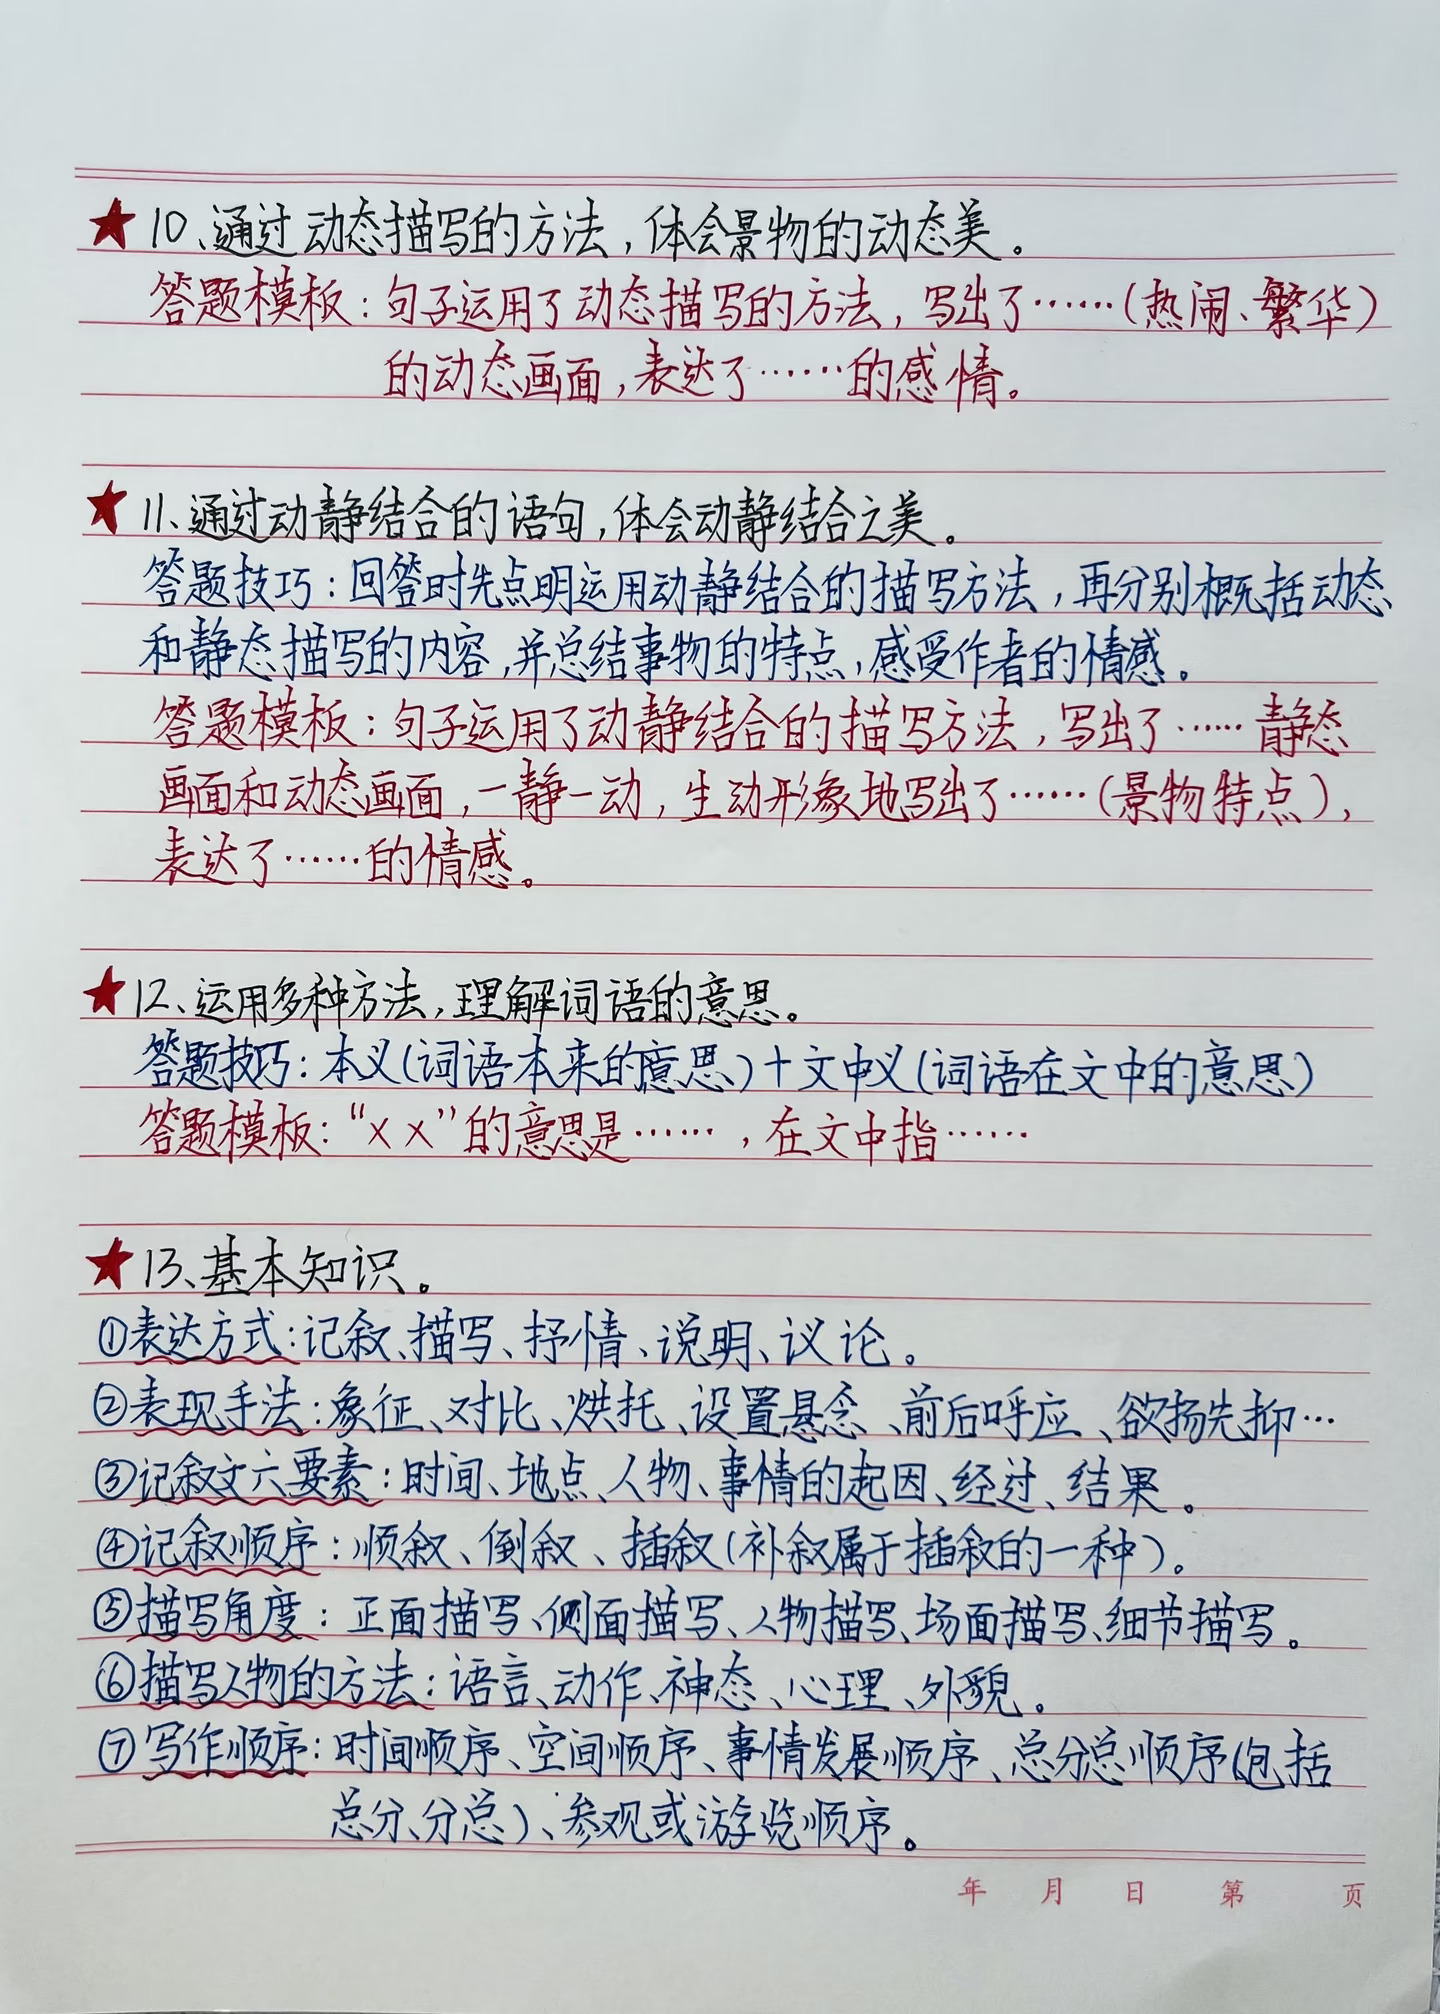 ★10、通过动态描写的方法，体会景物的动态美。
答题模板：句子运用了动态描写的方法，写出了……（热闹、繁华）
的动态画面，表达了……的感情。
★11、通过动静结合的语句，体会动静结合之美。
答题技巧：回答时先点明运用动静结合的描写方法，再分别概括动态
和静态描写的内容，并总结事物的特点，感受作者的情感。
答题模板：句子运用了动静结合的描写方法，写出了……静态
画面和动态画面，一静一动，生动形象地写出了……（景物特点），
表达了……的情感。
★12、运用多种方法，理解词语的意思。
答题技巧：本义（词语本来的意思）+文中义（词语在文中的意思）
答题模板：“××”的意思是……，在文中指……
★13、基本知识。
①表达方式：记叙、描写、抒情、说明、议论。
②表现手法：象征、对比、烘托、设置悬念、前后呼应、欲扬先抑…
③记叙文六要素：时间、地点、人物、事情的起因、经过、结果。
④记叙顺序：顺叙、倒叙、插叙（补叙属于插叙的一种）。
⑤描写角度：正面描写、侧面描写、人物描写、场面描写、细节描写。
⑥描写人物的方法：语言、动作、神态、心理、外貌。
⑦写作顺序：时间顺序、空间顺序、事情发展顺序、总分总顺序（包括
总分、分总）、参观或游览顺序。
年 月 日 第 页